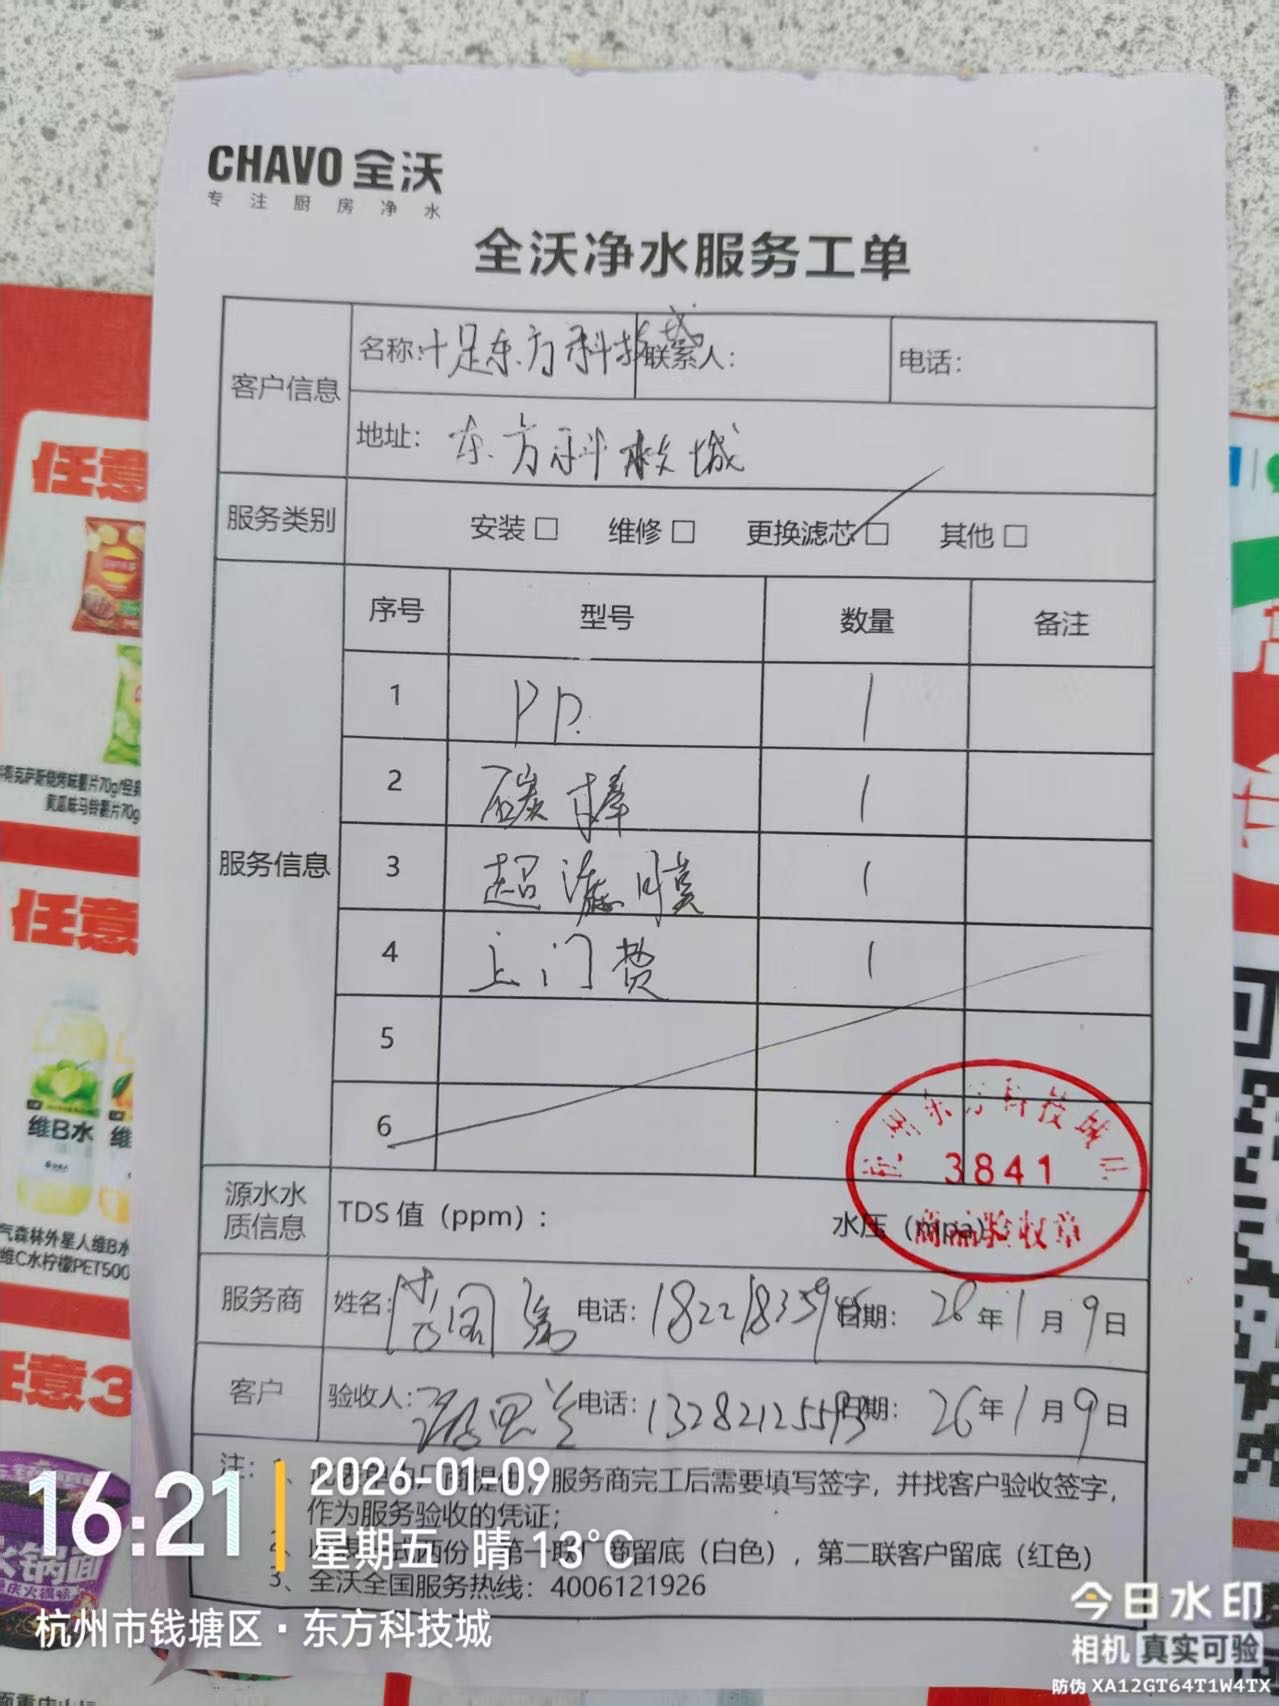 CHAVO 全沃
专注厨房净水
全沃净水服务工单
客户信息
名称: 十足东方科技城
联系人:
电话:
地址: 东方科技城
服务类别
安装□ 维修□ 更换滤芯□ 其他□
服务信息
序号 型号 数量 备注
1 PP. 1
2 碳棒 1
3 超滤膜 1
4 上门费 1
5
6
杭州东方科技城店
3841
商品验收章
源水水质信息
TDS 值 (ppm):
水压 (mpa)
服务商
姓名:
电话: 182218359
日期: 26年1月9日
客户
验收人:
电话: 13282125593
日期: 26年1月9日
注: 1、 厂商提供, 服务商完工后需要填写签字, 并找客户验收签字,
作为服务验收的凭证;
2、 两份, 第一联 商留底 (白色), 第二联客户留底 (红色)
3、全沃全国服务热线: 4006121926
16:21
2026-01-09
星期五 晴 13°C
杭州市钱塘区·东方科技城
今日水印
相机 真实可验
防伪 XA12GT64T1W4TX
任意
黄瓜味马铃薯片70g
任意
维B水
气森林外星人维B水
维C水柠檬PET500
任意3
火锅面